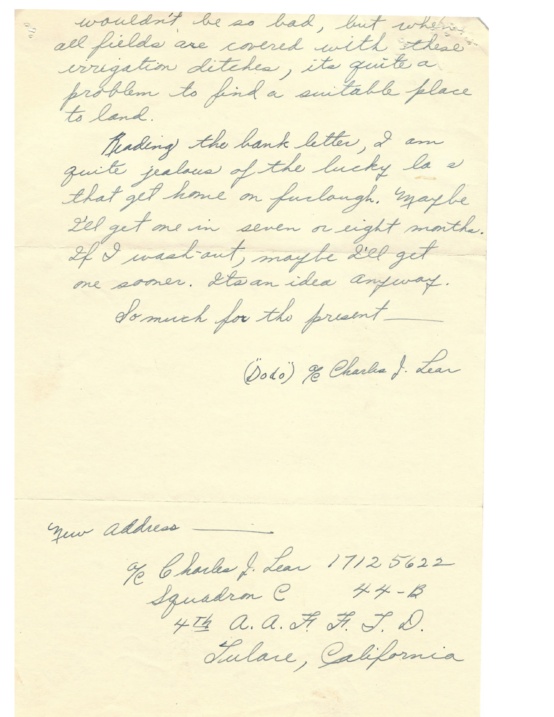 wouldn't be so bad, but when
all fields are covered with these
irrigation ditches, its quite a
problem to find a suitable place
to land.
Reading the bank letter, I am
quite jealous of the lucky la s
that get home on furlough. Maybe
I'll get one in seven or eight months.
If I wash-out, maybe I'll get
one sooner. Its an idea anyway.
So much for the present —
("Dodo") A/C Charles J. Lear
New Address —
A/C Charles J. Lear 17125622
Squadron C 44-B
4th A. A. F. F. T. D.
Tulare, California